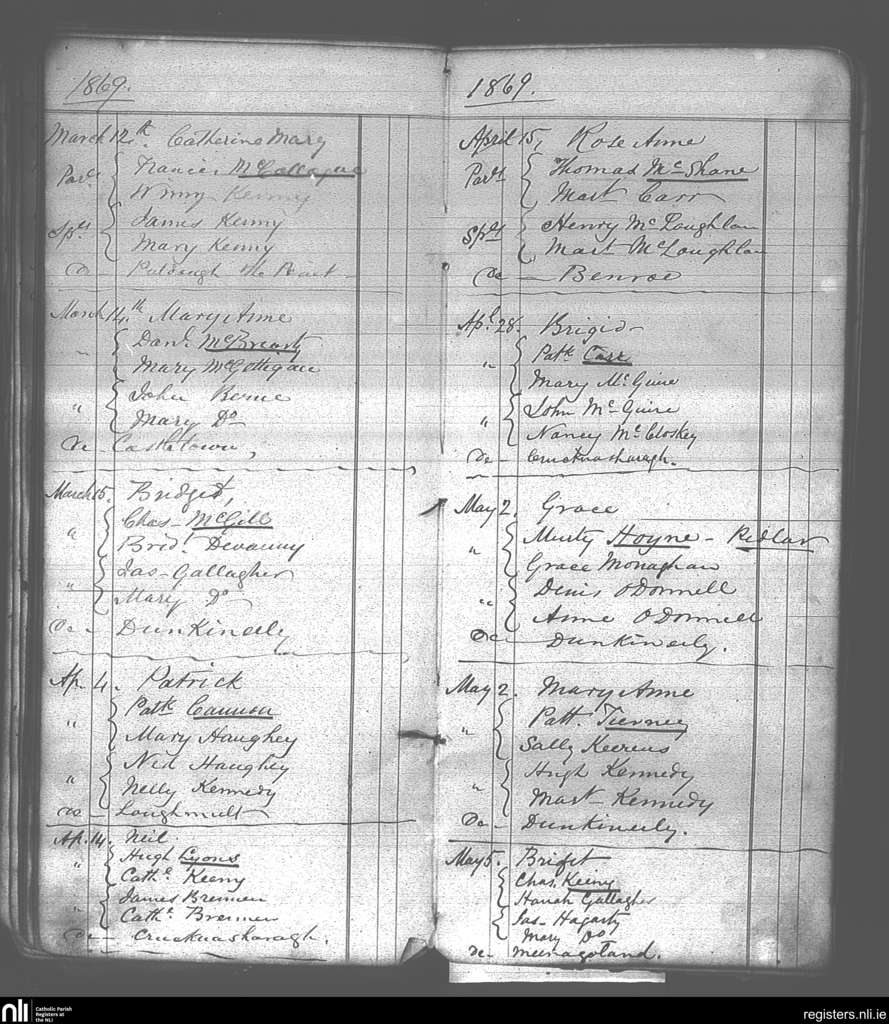 1869.
March 12th. Catherine Mary
Parts Francis McCollogue
Winny Kenny
Sprs James Kenny
Mary Kenny
De - the Point -
March 14th Mary Anne
" Danl. McBrearty
Mary McGettigan
" John Berne
Mary Do
De - Castletown,
March 15. Bridget,
" Chas - McGill
Bridt Devanny
" Jas - Gallagher
Mary Do
De - Dunkineely
Ap. 4. Patrick
" Patk Cannon
Mary Haughey
" Ned Haughey
Nelly Kennedy
De - Loughmult
Ap. 14. Neil
" Hugh Lyons
Cathe Keeny
" James Brennen
Cathe Brennen
De - Crucknasharagh.
1869.
April 15, Rose Anne
Parts Thomas McShane
Mart Carr
Sprs Henry McLoughlan
Mart McLoughlan
De - Benroe
Apl 28. Brigid -
" Patk Carr
Mary McGuire
" John McGuire
Nancy McCloskey
De - Crucknasharagh.
May 2. Grace
" Murty Hoyne - Pedlar
Grace Monaghan
" Denis O'Donnell
Anne O'Donnell
De - Dunkineely.
May 2. Mary Anne
" Patt. Tierney
Sally Keerens
" Hugh Kennedy
Mart - Kennedy
De - Dunkineely.
May 5. Briget
Chas. Keeny
Hanah Gallagher
Jas - Hagarty
Mary Do
De - Meenagotand.
nli Catholic Parish
Registers at
the NLI
registers.nli.ie